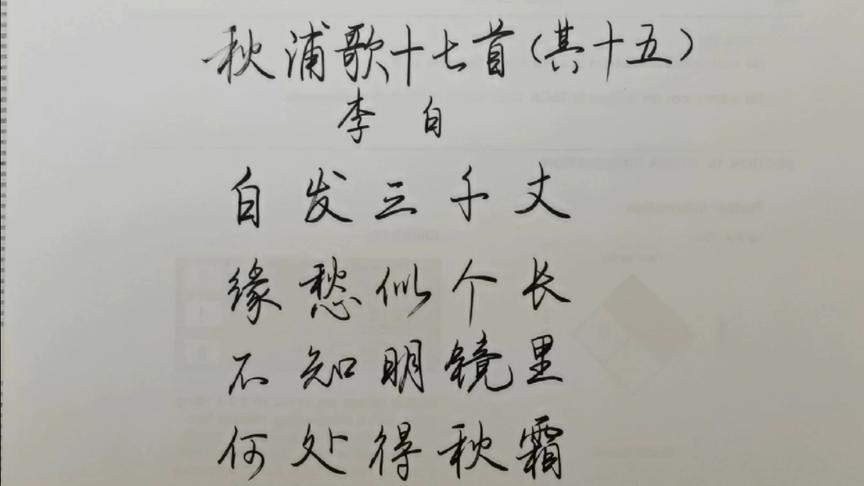 秋浦歌十七首(其十五)
李白
白发三千丈
缘愁似个长
不知明镜里
何处得秋霜